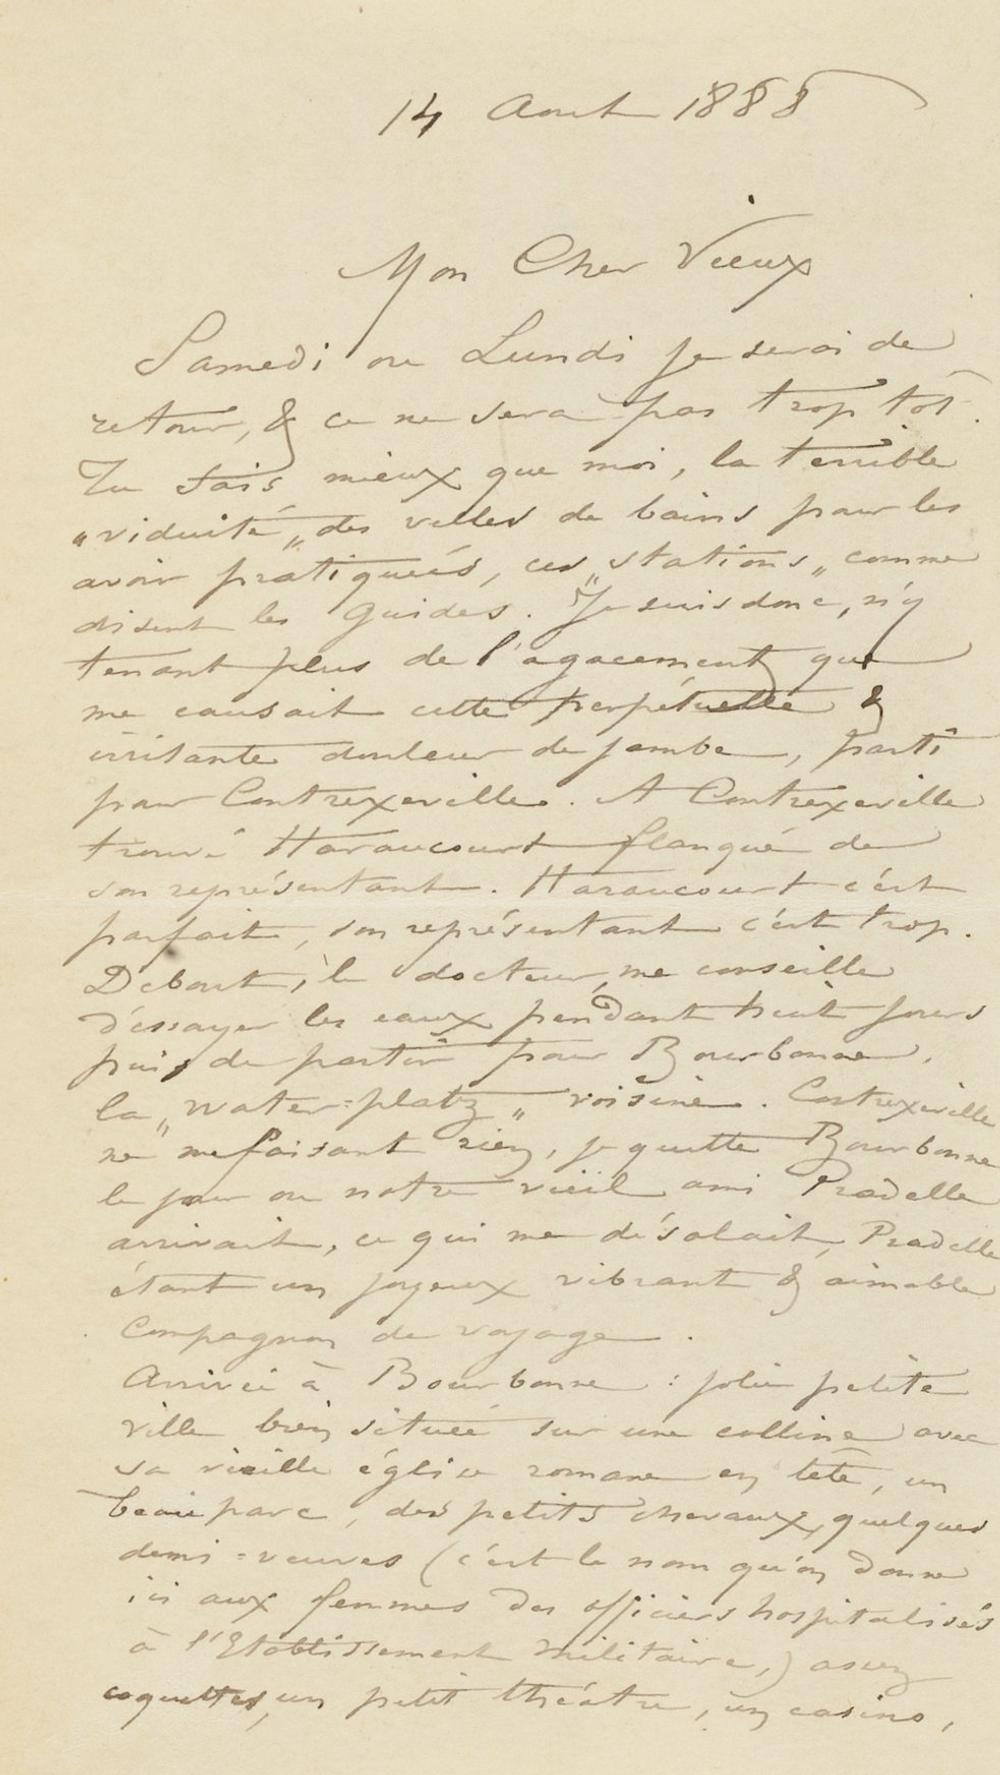 14 Aout 1888
Mon Cher Vieux
Samedi ou Lundi je serai de
retour, & ce ne sera pas trop tôt.
Tu sais mieux que moi, la terrible
"viduité" des villes de bains pour les
avoir pratiqueés, ces "stations" comme
disent les Guides. Je suis donc, n'y
tenant plus de l'agacement que
me causait cette perpétuelle &
irritante douleur de jambe, parti
pour Contrexeville. A Contrexeville
trouvé Haraucourt flanqué de
son représentant. Haraucourt c'ést
parfait, son représentant c'ést trop.
Debout, le docteur, me conseille
d'éssayer les eaux pendant huit jours
puis de partir pour Bourbonne,
la "water=platz" voisine. Contrexeville
ne me faisant rien, je quitte Bourbonne
le jour ou notre vieil ami Pradelle
arrivait, ce qui me désolait, Pradelle
étant un joyeux vibrant & aimable
Compagnon de voyage.
Arrivée à Bourbonne : jolie petite
ville bien située sur une colline avec
sa vieille église romane en tête, un
beau parc, des petits chevaux, quelques
demi=veuves (c'ést le nom qu'on donne
ici aux femmes des officiers hospitalisés
à l'Etablissement Militaire,) assez
coquettes, un petit théâtre, un casino,